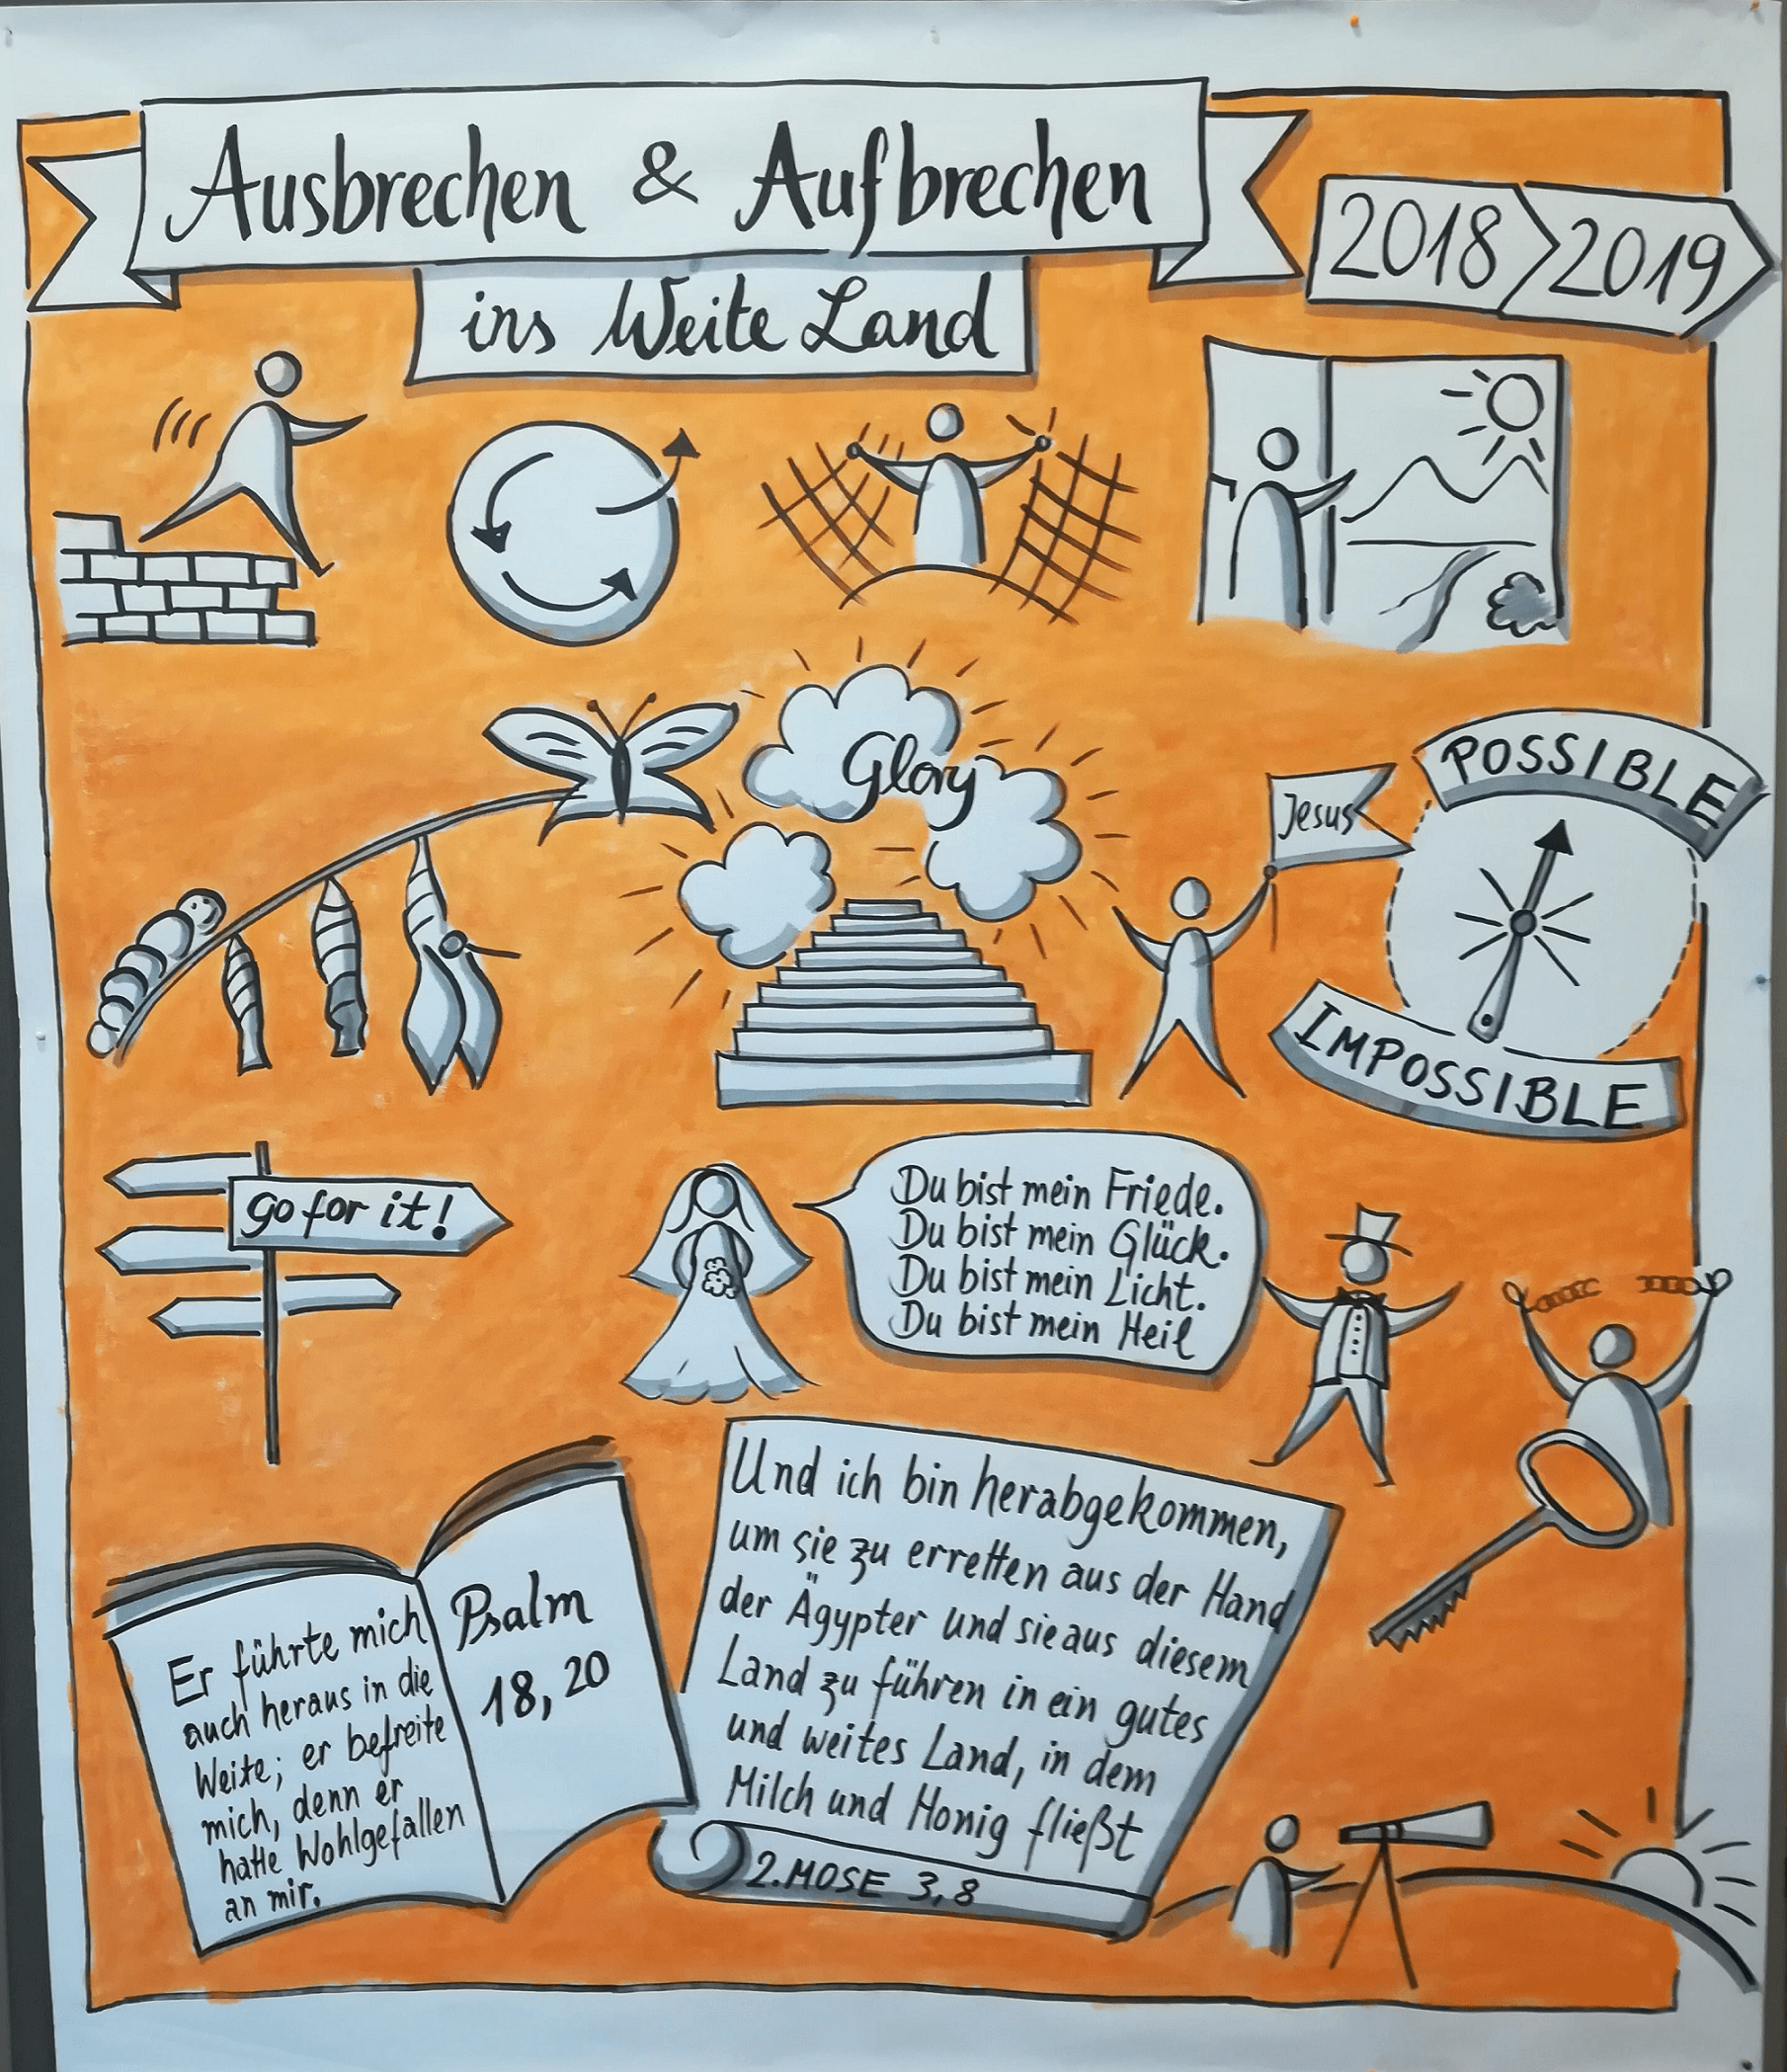 Ausbrechen & Aufbrechen
ins Weite Land
2018 2019
Glory
Jesus
POSSIBLE
IMPOSSIBLE
go for it!
Du bist mein Friede.
Du bist mein Glück.
Du bist mein Licht.
Du bist mein Heil
Er führte mich
auch heraus in die
Weite; er befreite
mich, denn er
hatte Wohlgefallen
an mir.
Psalm
18,20
Und ich bin herabgekommen,
um sie zu erretten aus der Hand
der Ägypter und sie aus diesem
Land zu führen in ein gutes
und weites Land, in dem
Milch und Honig fließt
2.MOSE 3,8